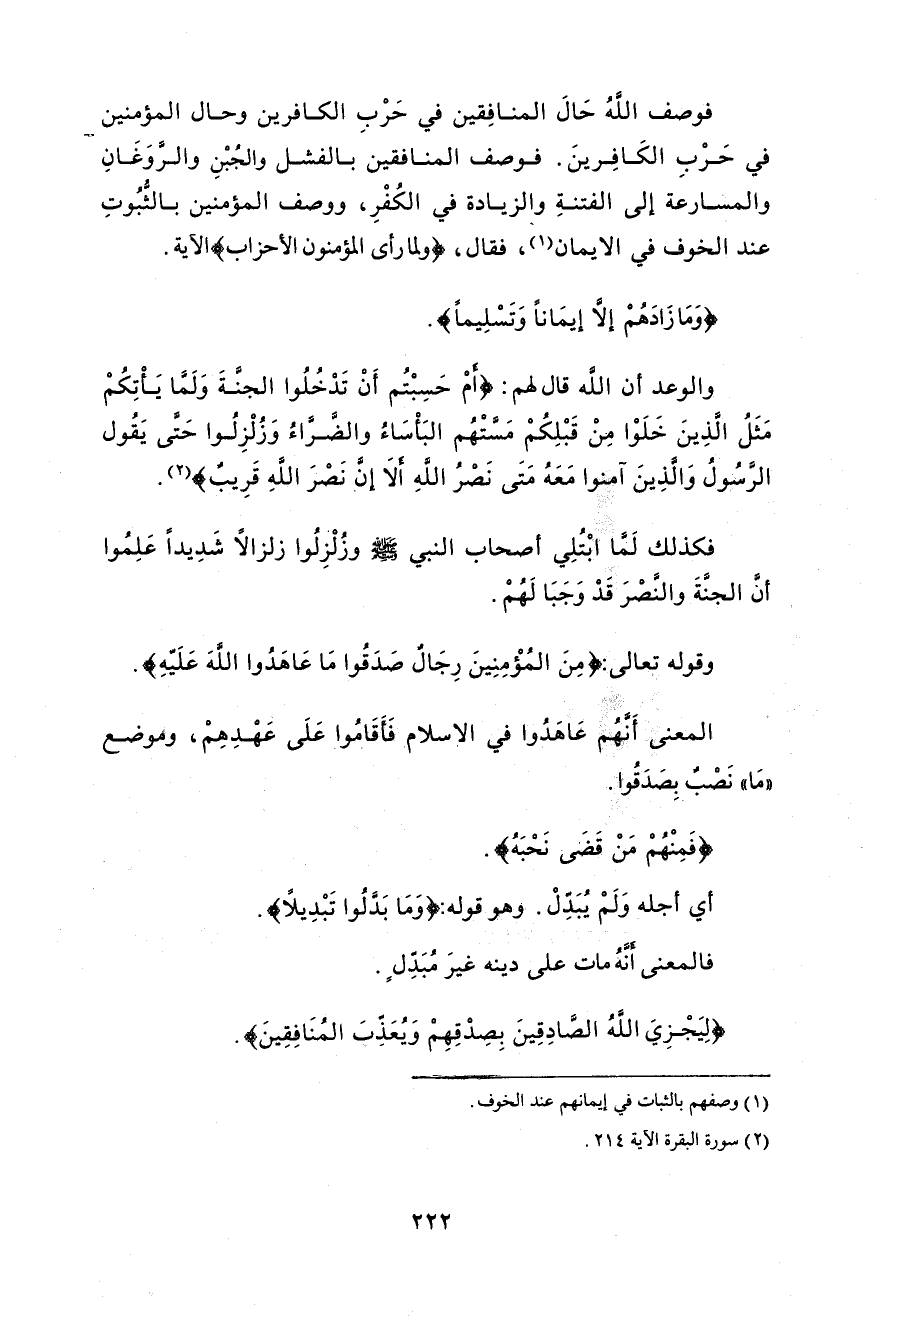 فوصف اللَّهُ حَالَ المنـافِقين في حَرْبِ الكـافرين وحـال المؤمنين
في حَـرْبِ الكَـافِـرينَ. فـوصف المنـافقين بـالفشـل والجُبْنِ والـرَّوَغَـانِ
والمسـارعة إلى الفتنـةِ والزيـادة في الكُفْرِ، ووصف المؤمنين بـالثُّبُوتِ
عند الخوف في الايمان(١)، فقال، ﴿ولما رأى المؤمنون الأحزاب﴾الآية.
﴿وَمَا زَادَهُمْ إلَّا إيمَاناً وَتَسْلِيماً﴾.
والوعد أن اللَّه قال لهم: ﴿أَمْ حَسِبْتُم أَنْ تَدْخُلُوا الجنَّـةَ وَلَمَّا يَـأْتِكُمْ
مَثَلُ الَّذِينَ خَلَوْا مِنْ قَبْلِكُمْ مَسَّتْهُم البَأْسَاءُ والضَّـرَّاءُ وَزُلْزِلُـوا حَتَّى يَقُول
الرَّسُولُ وَالَّذِينَ آمنوا مَعَهُ مَتَى نَصْرُ اللَّهِ أَلَا إنَّ نَصْرَ اللَّهِ قَرِيبٌ﴾(٢).
فكذلك لَمَّا ابْتُلِي أصحاب النبي ﷺ وزُلْزِلُوا زلزالاً شَدِيداً عَلِمُوا
أنَّ الجنَّةَ والنَّصْرَ قَدْ وَجَبَا لَهُمْ.
وقوله تعالى:﴿مِنَ المُؤْمِنِينَ رِجَالٌ صَدَقُوا مَا عَاهَدُوا اللَّهَ عَلَيْهِ﴾.
المعنى أَنَّهُم عَاهَدُوا في الاسلام فَأَقَامُوا عَلَى عَهْـدِهِمْ، وموضـع
«مَا» نَصْبٌ بِصَدَقُوا.
﴿فَمِنْهُمْ مَنْ قَضَى نَحْبَهُ﴾.
أي أجله وَلَمْ يُبَدِّلْ. وهو قوله:﴿وَمَا بَدَّلُوا تَبْدِيلًا﴾.
فالمعنى أَنَّهُ مات على دينه غيرَ مُبَدِّلٍ.
﴿لِيَجْـزِيَ اللَّهُ الصَّادِقِينَ بِصِدْقِهِمْ وَيُعَذِّبَ المُنَافِقِينَ﴾.
(١) وصفهم بالثبات في إيمانهم عند الخوف.
(٢) سورة البقرة الآية ٢١٤.
٢٢٢